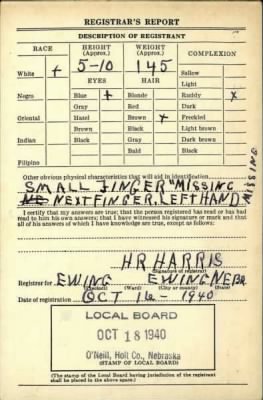 REGISTRAR'S REPORT
DESCRIPTION OF REGISTRANT
RACE HEIGHT (Approx.) WEIGHT (Approx.) COMPLEXION
White + 5-10 145 Sallow
EYES HAIR Light
Negro Blue + Blonde Ruddy x
Gray Red Dark
Oriental Hazel Brown x Freckled
Brown Black Light brown
Indian Black Gray Dark brown
Bald Black
Filipino
Other obvious physical characteristics that will aid in identification
SMALL FINGER "MISSING
NEXT FINGER, LEFT HAND
MISSING
I certify that my answers are true; that the person registered has read or has had
read to him his own answers; that I have witnessed his signature or mark and that
all of his answers of which I have knowledge are true, except as follows:
H R HARRIS
(Signature of registrar)
Registrar for EWING EWING NEBR
(Precinct) (Ward) (City or county) (State)
Date of registration OCT 16 - 1940
LOCAL BOARD
OCT 18 1940
O'Neill, Holt Co., Nebraska
(STAMP OF LOCAL BOARD)
(The stamp of the Local Board having jurisdiction of the registrant
shall be placed in the above space.)